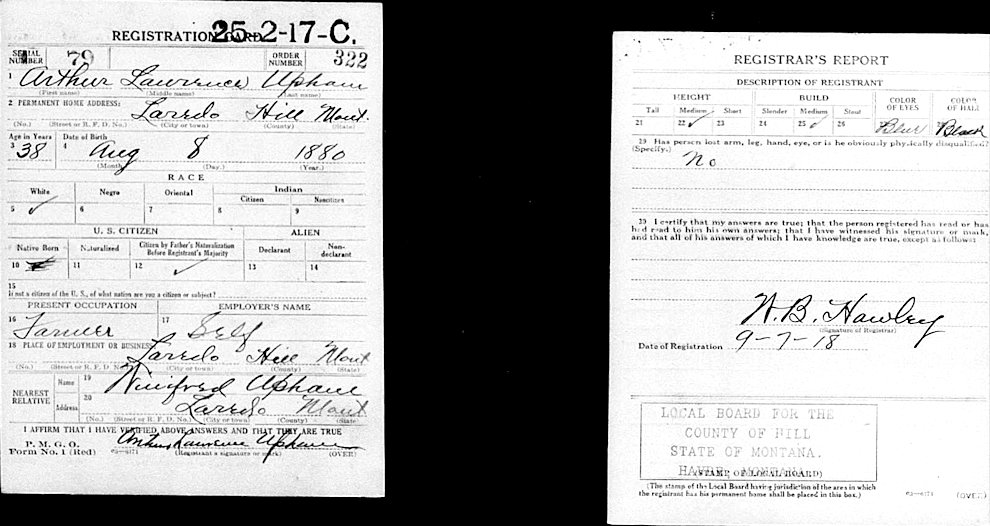 REGISTRATION CARD 25-2-17-C.
SERIAL NUMBER 79 ORDER NUMBER 322
1 Arthur Lawrence Upham
(First name) (Middle name) (Last name)
2 PERMANENT HOME ADDRESS: Laredo Hill Mont.
(No.) (Street or R. F. D. No.) (City or town) (County) (State)
Age in Years Date of Birth
3 38 4 Aug 8 1880
(Month.) (Day.) (Year.)
RACE
White Negro Oriental Indian
Citizen Noncitizen
5 ✓ 6 7 8 9
U. S. CITIZEN ALIEN
Native Born Naturalized Citizen by Father's Naturalization Before Registrant's Majority Declarant Non-declarant
10 11 12 ✓ 13 14
15
If not a citizen of the U. S., of what nation are you a citizen or subject?
PRESENT OCCUPATION EMPLOYER'S NAME
16 Farmer 17 Self
18 PLACE OF EMPLOYMENT OR BUSINESS: Laredo Hill Mont
(No.) (Street or R. F. D. No.) (City or town) (County) (State)
NEAREST RELATIVE Name 19 Winifred Upham
Address 20 Laredo Mont
(No.) (Street or R. F. D. No.) (City or town) (County) (State)
I AFFIRM THAT I HAVE VERIFIED ABOVE ANSWERS AND THAT THEY ARE TRUE
P. M. G. O.
Form No. 1 (Red) Arthur Lawrence Upham
(Registrant's signature or mark) (OVER)
REGISTRAR'S REPORT
DESCRIPTION OF REGISTRANT
HEIGHT BUILD COLOR OF EYES COLOR OF HAIR
Tall Medium Short Slender Medium Stout
21 22 ✓ 23 24 25 ✓ 26 Blue Black
29 Has person lost arm, leg, hand, eye, or is he obviously physically disqualified?
(Specify.) No
30 I certify that my answers are true; that the person registered has read or has
had read to him his own answers; that I have witnessed his signature or mark,
and that all of his answers of which I have knowledge are true, except as follows:
(Signature of Registrar)
Date of Registration 9-7-18
LOCAL BOARD FOR THE
COUNTY OF HILL
STATE OF MONTANA.
HAVRE, MONTANA
(STAMP OF LOCAL BOARD)
(The stamp of the Local Board having jurisdiction of the area in which
the registrant has his permanent home shall be placed in this box.)
(OVER)